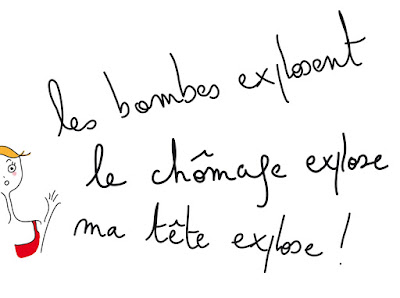 les bombes explosent
le chômage explose
ma tête explose !